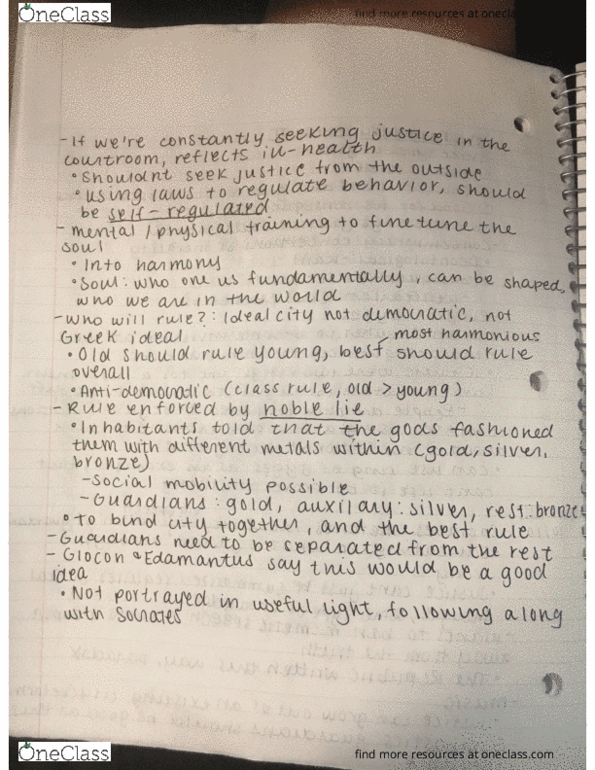 OneClass
find more resources at oneclass
-If we're constantly seeking justice in the
courtroom, reflects ill-health
•Shouldnt seek justice from the outside
•using laws to regulate behavior, should
be self-regulated
-mental/physical training to finetune the
soul
•Into harmony
•Soul: who one us fundamentally, can be shaped,
who we are in the world
-Who will rule?: Ideal city not democratic, not
Greek ideal
most harmonious
•Old should rule young, best should rule
overall
•Anti-democratic (class rule, old > young)
-Rule enforced by noble lie
•Inhabitants told that the gods fashioned
them with different metals within (gold, silver,
bronze)
-Social mobility possible
-Guardians: gold, auxilary: silver, rest: bronze
•To bind city together, and the best rule
-Guardians need to be separated from the rest
-Glocon & Edamantus say this would be a good
idea
•Not portrayed in useful light, following along
with Socrates
OneClass
find more resources at oneclass.com